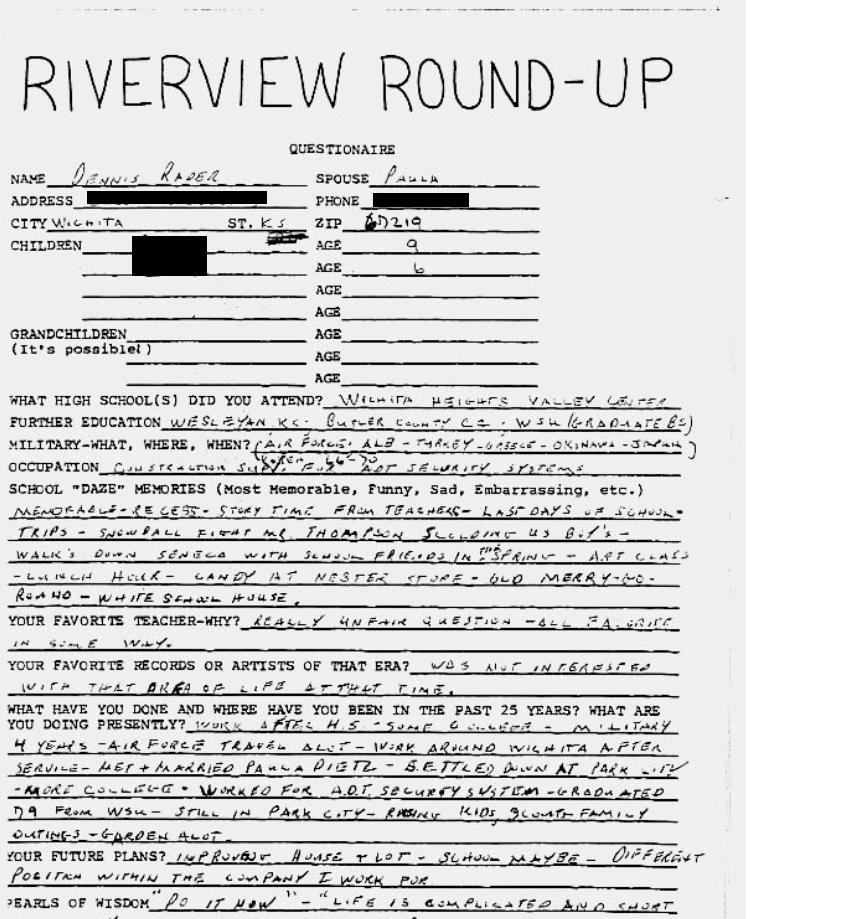 RIVERVIEW ROUND-UP
QUESTIONAIRE
NAME DENNIS RADER SPOUSE PAULA
ADDRESS PHONE
CITY WICHITA ST. KS ZIP 67219
CHILDREN AGE 9
AGE 6
AGE
AGE
GRANDCHILDREN AGE
(It's possible!) AGE
AGE
WHAT HIGH SCHOOL(S) DID YOU ATTEND? WICHITA HEIGHTS VALLEY CENTER
FURTHER EDUCATION WESLEYAN KS. BUTLER COUNTY CC - WSU (GRADUATE BS)
MILITARY-WHAT, WHERE, WHEN? (AIR FORCE: ALB - TURKEY - GREECE - OKINAWA - JAPAN)
KOREA 66-70
OCCUPATION CONSTRUCTION SUPV. FOR ADT SECURITY SYSTEMS
SCHOOL "DAZE" MEMORIES (Most Memorable, Funny, Sad, Embarrassing, etc.)
MEMORABLE - RECESS - STORY TIME FROM TEACHERS - LAST DAYS OF SCHOOL -
TRIPS - SNOWBALL FIGHT MR. THOMPSON SCOLDING US BOY'S -
WALK'S DOWN SENECA WITH SCHOOL FRIENDS IN THE SPRING - ART CLASS
- LUNCH HOUR - CANDY AT NESTER STORE - OLD MERRY-GO-
ROUND - WHITE SCHOOL HOUSE.
YOUR FAVORITE TEACHER-WHY? REALLY UNFAIR QUESTION - ALL FAVORITE
IN SOME WAY.
YOUR FAVORITE RECORDS OR ARTISTS OF THAT ERA? WAS NOT INTERESTED
WITH THAT AREA OF LIFE AT THAT TIME.
WHAT HAVE YOU DONE AND WHERE HAVE YOU BEEN IN THE PAST 25 YEARS? WHAT ARE
YOU DOING PRESENTLY? WORK AFTER H.S. - SOME COLLEGE - MILITARY
4 YEARS - AIR FORCE TRAVEL ALOT - WORK AROUND WICHITA AFTER
SERVICE - MET + MARRIED PAULA DIETZ - SETTLED DOWN AT PARK CITY
- MORE COLLEGE - WORKED FOR A.D.T. SECURITY SYSTEM - GRADUATED
79 FROM WSU - STILL IN PARK CITY - RAISING KIDS, SCOUTS FAMILY
OUTINGS - GARDEN ALOT.
YOUR FUTURE PLANS? HOUSE + LOT - SCHOOL MAYBE - DIFFERENT
POSITION WITHIN THE COMPANY I WORK FOR
PEARLS OF WISDOM "DO IT NOW" - "LIFE IS COMPLICATED AND SHORT